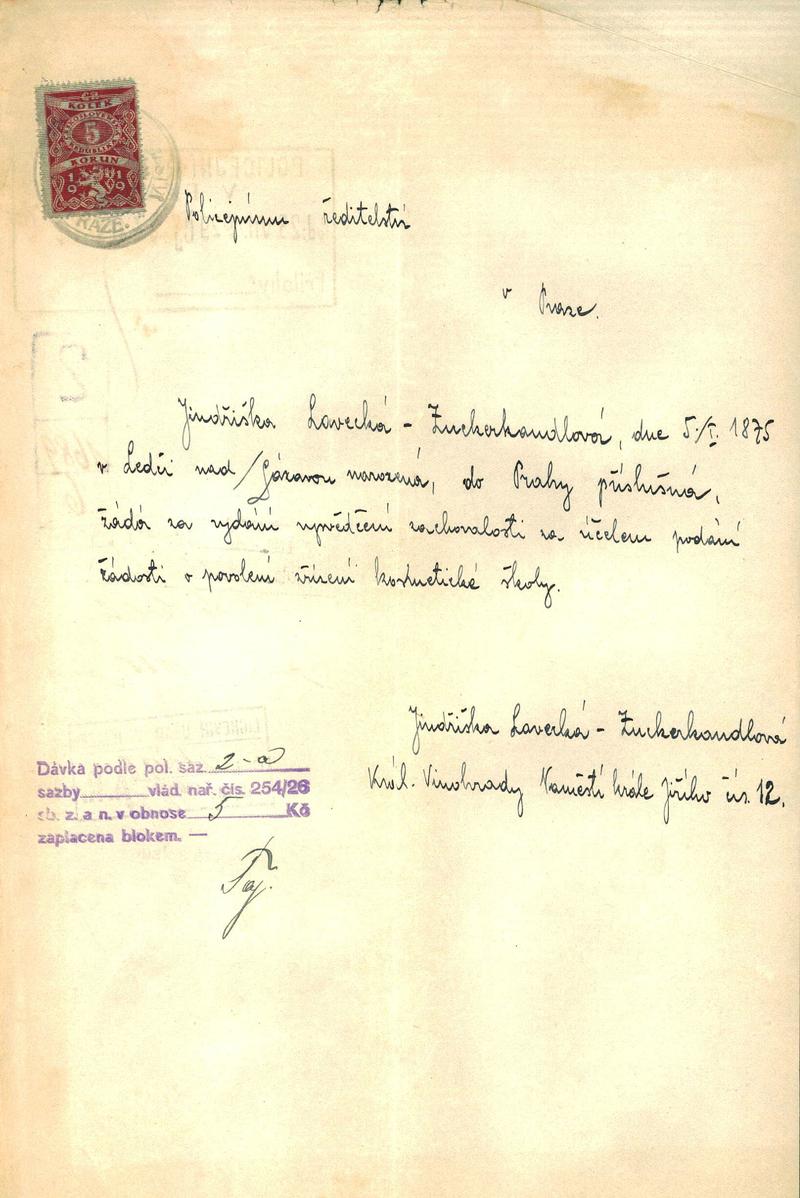 KOLEK
ČESKOSLOVENSKÁ
REPUBLIKA
5
KORUN
1919
PRAZE.
Policejnímu ředitelství
v Praze.
Jindřiška Lavecká - Zuckerkandlová, dne 5./I. 1875
v Ledči nad Sázavou narozená, do Prahy příslušná,
žádá za vydání vysvědčení zachovalosti za účelem podání
žádosti o povolení zřízení kosmetické školy.
Jindřiška Lavecká - Zuckerkandlová
Král. Vinohrady Naměstí krále Jiřího čís. 12.
Dávka podle pol. saz. 2-a
sazby vlád. nař. čís. 254/26
sb. z. a n. v obnose 5 Kč
zaplacena blokem. —